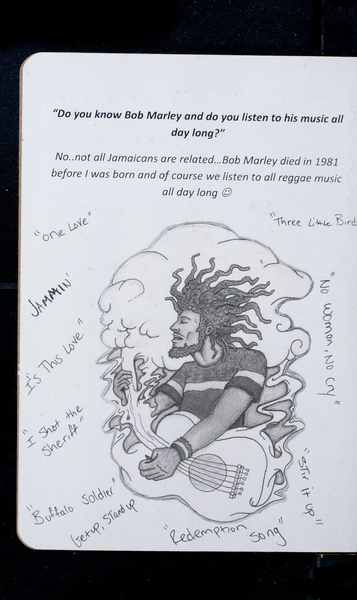 “Do you know Bob Marley and do you listen to his music all
day long?”
No..not all Jamaicans are related...Bob Marley died in 1981
before I was born and of course we listen to all reggae music
all day long ☺
"One Love"
"Three Little Bird
JAMMIN'
"No woman, No cry"
"Is This Love"
"I Shot the
Sheriff"
"Stir it up"
"Buffalo Soldier"
Get up, Stand up
"Redemption Song"